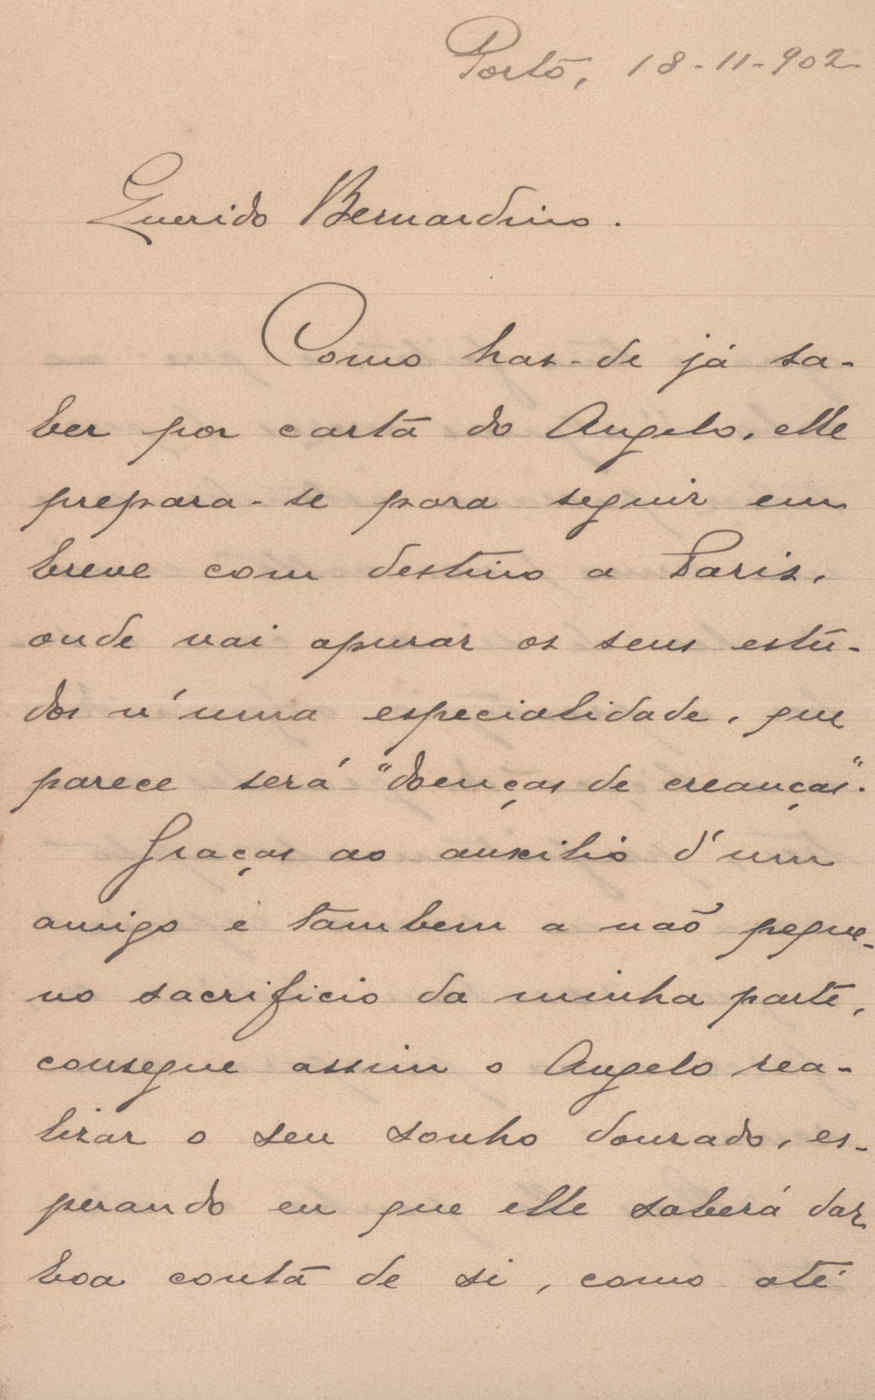 Porto, 18-11-902
Querido Bernardino.
Como has-de já sa-
ber por carta do Angelo, elle
prepara-se para seguir em
breve com destino a Paris,
onde vai apurar os seus estu-
dos n'uma especialidade, que
parece será "doenças de creanças".
Graças ao auxilio d'um
amigo e tambem a não peque-
no sacrificio da minha parte,
consegue assim o Angelo rea-
lizar o seu sonho dourado, es-
perando eu que elle saberá dar
boa conta de si, como até